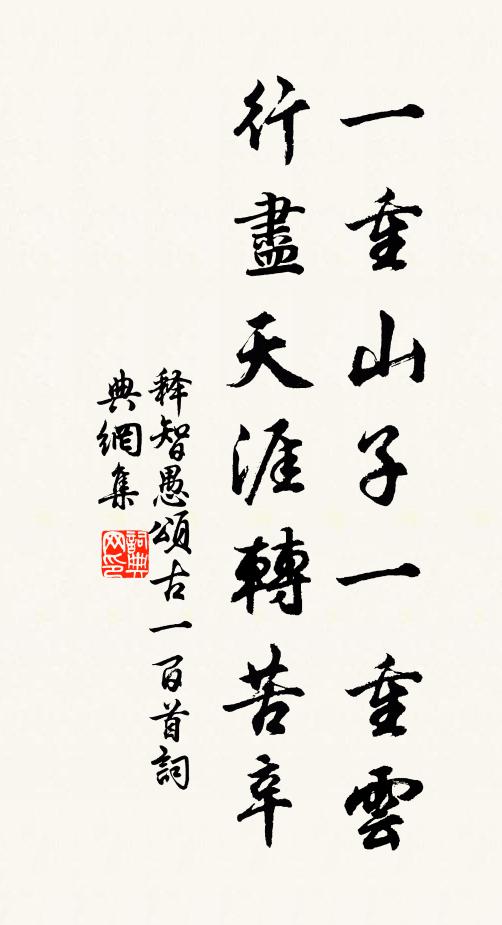 一重山子一重雲
行盡天涯轉苦辛
釋智愚頌古一百首詞
典網集
詞典
网印